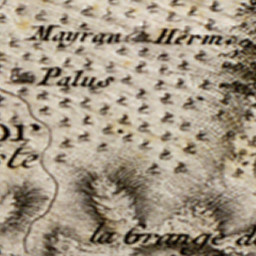 Mayran Herm
Palus
or
ste
la Grange de